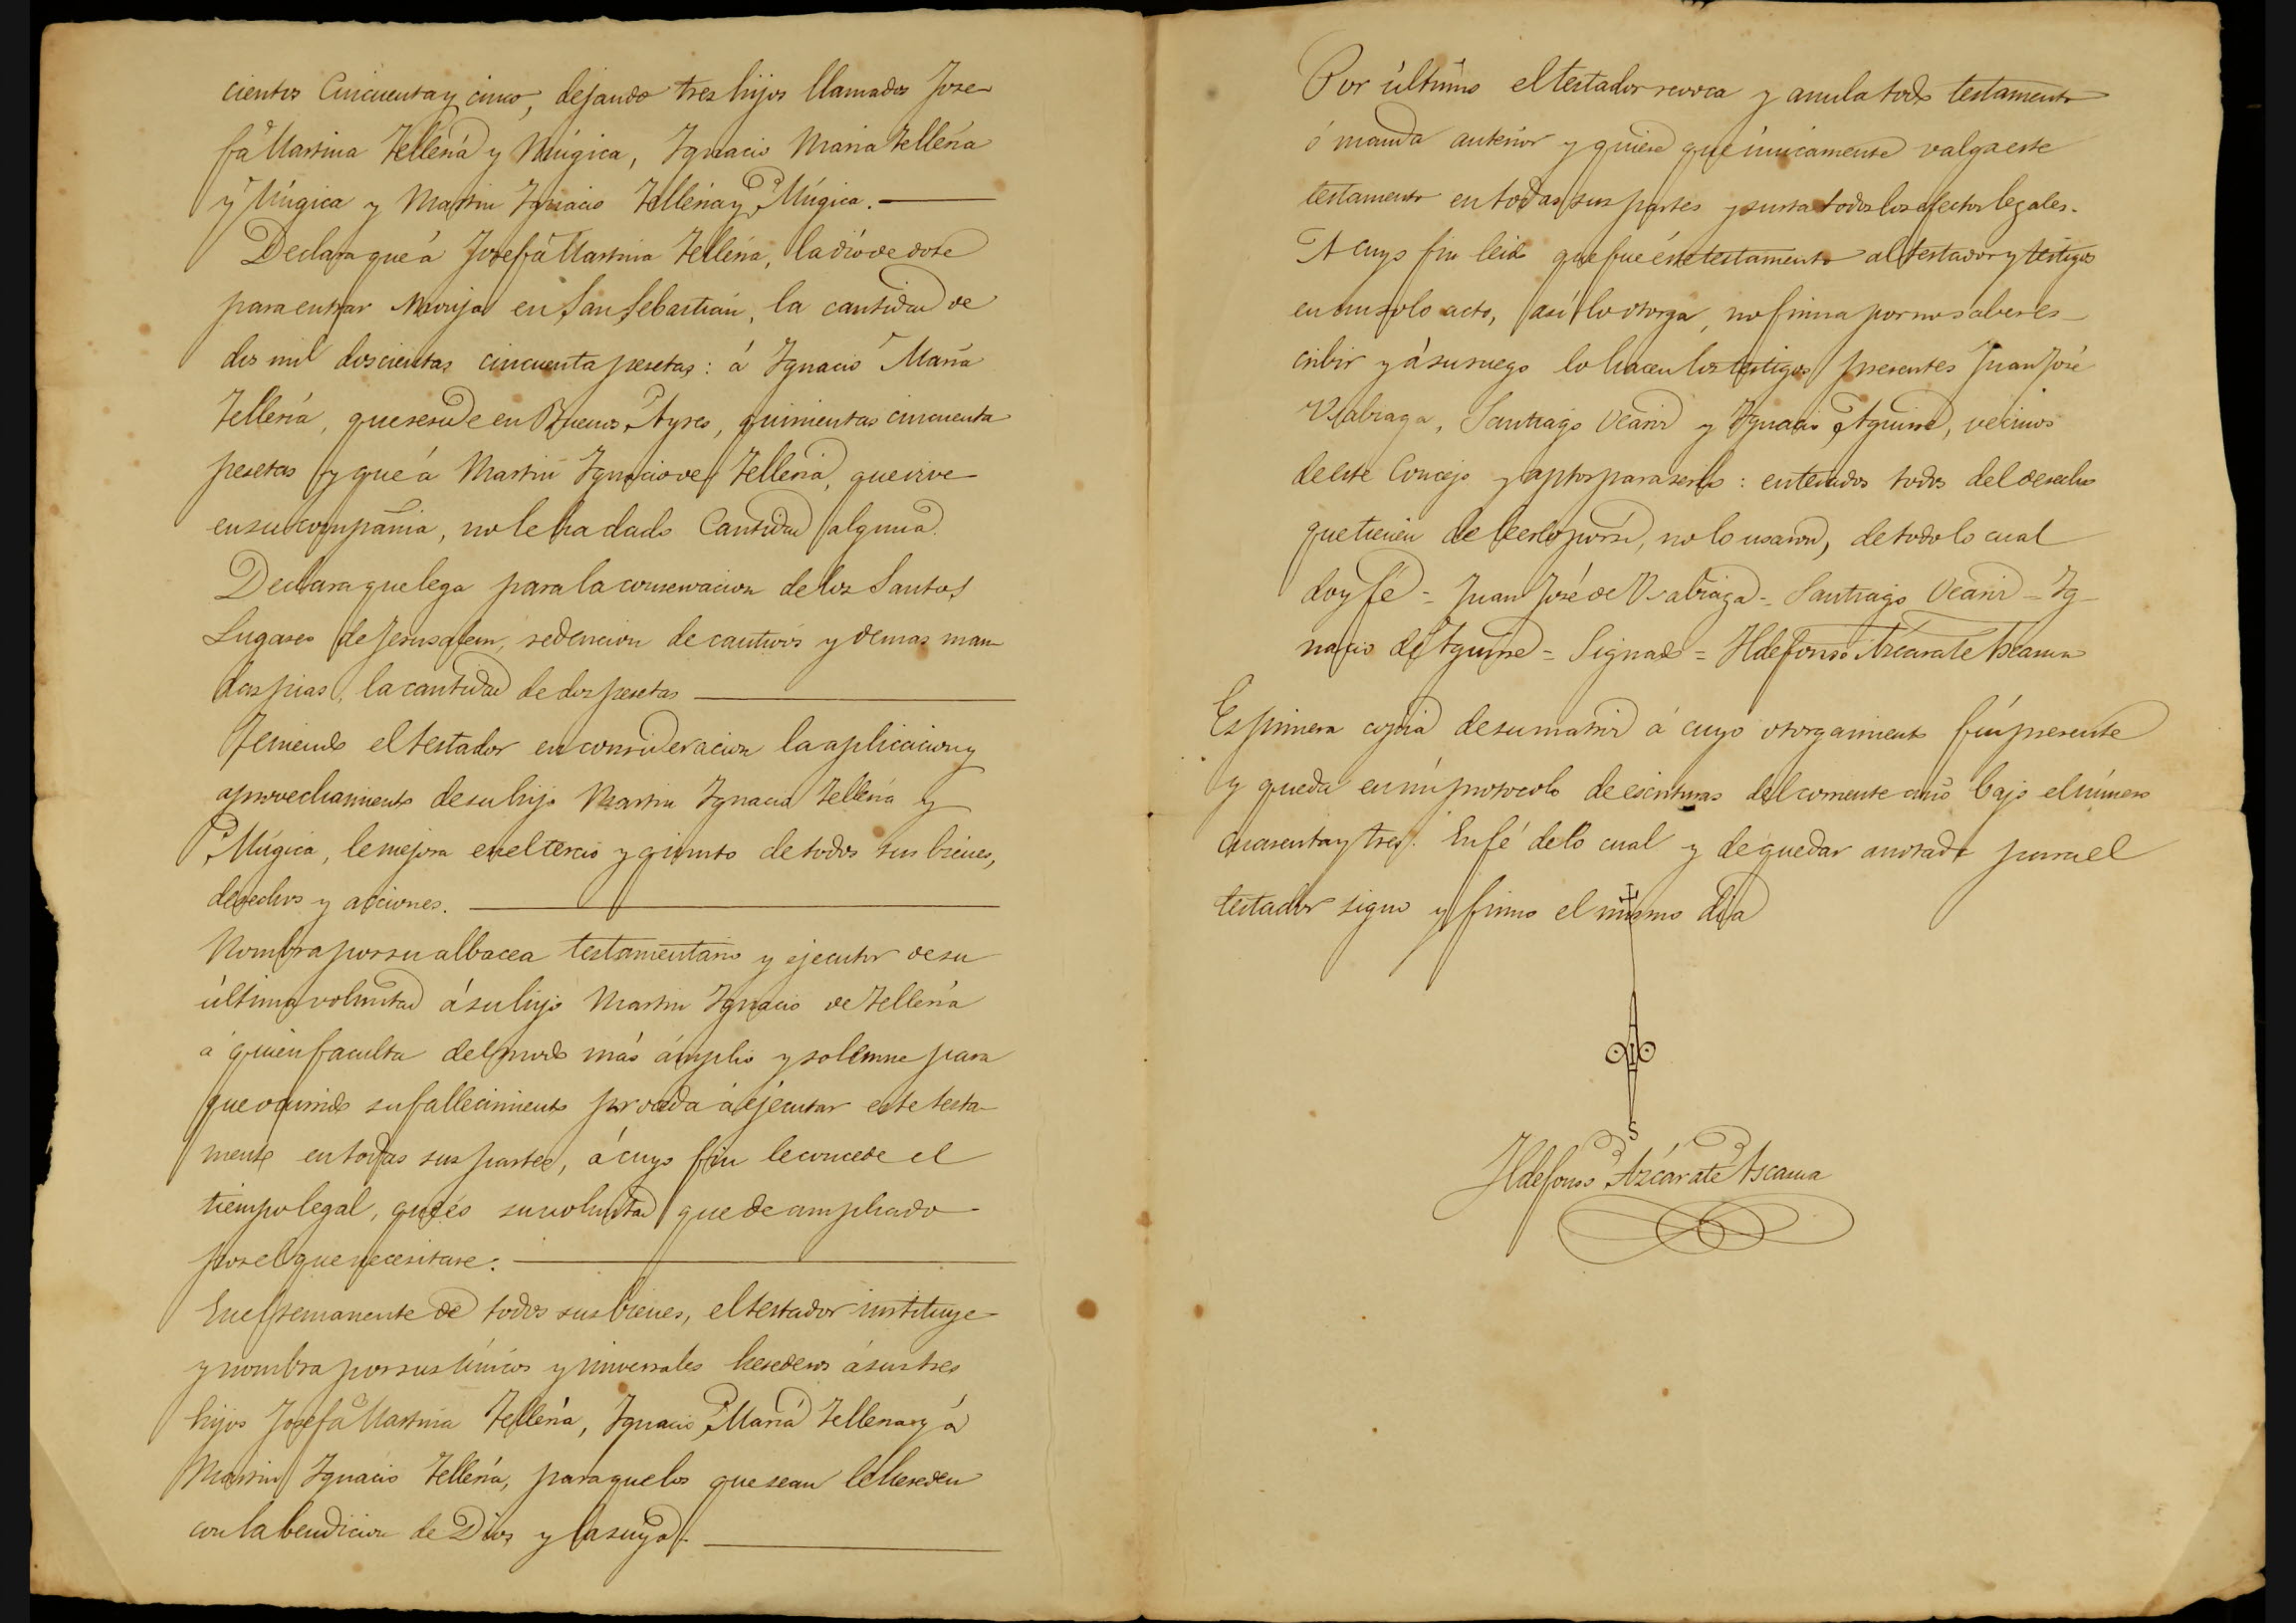 cientos Cincuenta y cinco, dejando tres hijos llamados Jose-
fa Martina Tellería y Múgica, Ignacio Maria Tellería
y Múgica y Martin Ignacio Tellería y Múgica.
Declara que á Josefa Martina Tellería, la dió de dote
para entrar Monja en San Sebastián, la cantidad de
dos mil doscientas cincuenta pesetas: á Ignacio María
Tellería, que reside en Buenos Ayres, quinientas cincuenta
pesetas y que á Martin Ignacio de Tellería, que vive
en su compañia, no le ha dado Cantidad alguna.
Declara que lega para la conservacion de los Santos
Lugares de Jerusalem, redencion de cautivos y demas man-
das pias, la cantidad de dos pesetas
Teniendo el testador en consideracion la aplicacion y
aprovechamiento de su hijo Martin Ignacio Tellería y
Múgica, le mejora en el tercio y quinto de todos sus bienes,
derechos y acciones.
Nombra por su albacea testamentario y ejecutor de su
última voluntad á su hijo Martin Ignacio de Tellería
á quien faculta del modo más ámplio y solemne para
que ocurrido su fallecimiento proceda á ejecutar este testa-
mento en todas sus partes, á cuyo fin le concede el
tiempo legal, que és su voluntad quede ampliado
por el que necesitare.
En el remanente de todos sus bienes, el testador instituye
y nombra por sus únicos y universales herederos á sus tres
hijos Josefa Martina Tellería, Ignacio María Tellería y á
Martin Ignacio Tellería, para que los que sean le hereden
con la bendicion de Dios y la suya.
Por último el testador revoca y anula todo testamento
ó manda anterior y quiere que únicamente valga este
testamento en todas sus partes y surta todos los efectos legales.
A cuyo fin leido que fue éste testamento al testador y testigos
en un solo acto, así lo otorga, no firma por no saber es-
cribir y á su ruego lo hacen los testigos presentes Juan José
Usabiaga, Santiago Ocariz y Ignacio Aguirre, vecinos
de este Concejo y aptos para serlo: enterados todos del derecho
que tienen de leerlo por sí, no lo usaron, de todo lo cual
doy fé = Juan José de Usabiaga = Santiago Ocariz = Ig-
nacio de Aguirre = Signado = Ildefonso Azcarate Ascasua
Es primera copia de su matriz á cuyo otorgamiento fuí presente
y queda en mi protocolo de escrituras del corriente año bajo el número
cuarenta y tres. En fé de lo cual y de quedar anotada para el
testador signo y firmo el mismo dia
Ildefonso Azcárate Ascasua